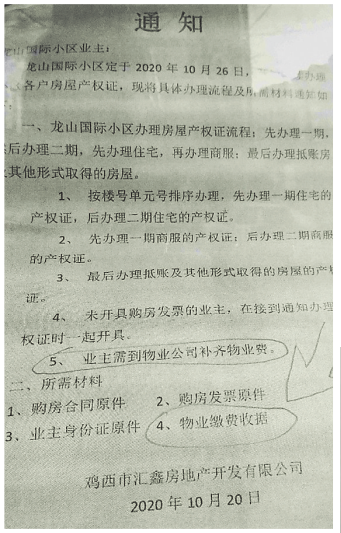 通 知
龙山国际小区业主：
龙山国际小区定于 2020 年 10 月 26 日，
区各户房屋产权证，现将具体办理流程及所需材料通知如
一、龙山国际小区办理房屋产权证流程：先办理一期，
后办理二期，先办理住宅，再办理商服；最后办理抵账房
其他形式取得的房屋。
1、 按楼号单元号排序办理，先办理一期住宅的
产权证，后办理二期住宅的产权证。
2、 先办理一期商服的产权证；后办理二期商服
的产权证。
3、 最后办理抵账及其他形式取得的房屋的产权
证。
4、 未开具购房发票的业主，在接到通知办理
权证时一起开具。
5、 业主需到物业公司补齐物业费。
二、所需材料
1、购房合同原件 2、购房发票原件
3、业主身份证原件 4、物业缴费收据
鸡西市汇鑫房地产开发有限公司
2020 年 10 月 20 日